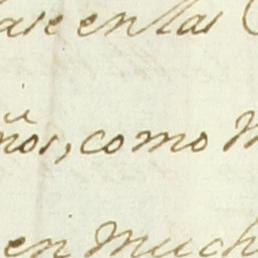 ase en las
ños, como
en much